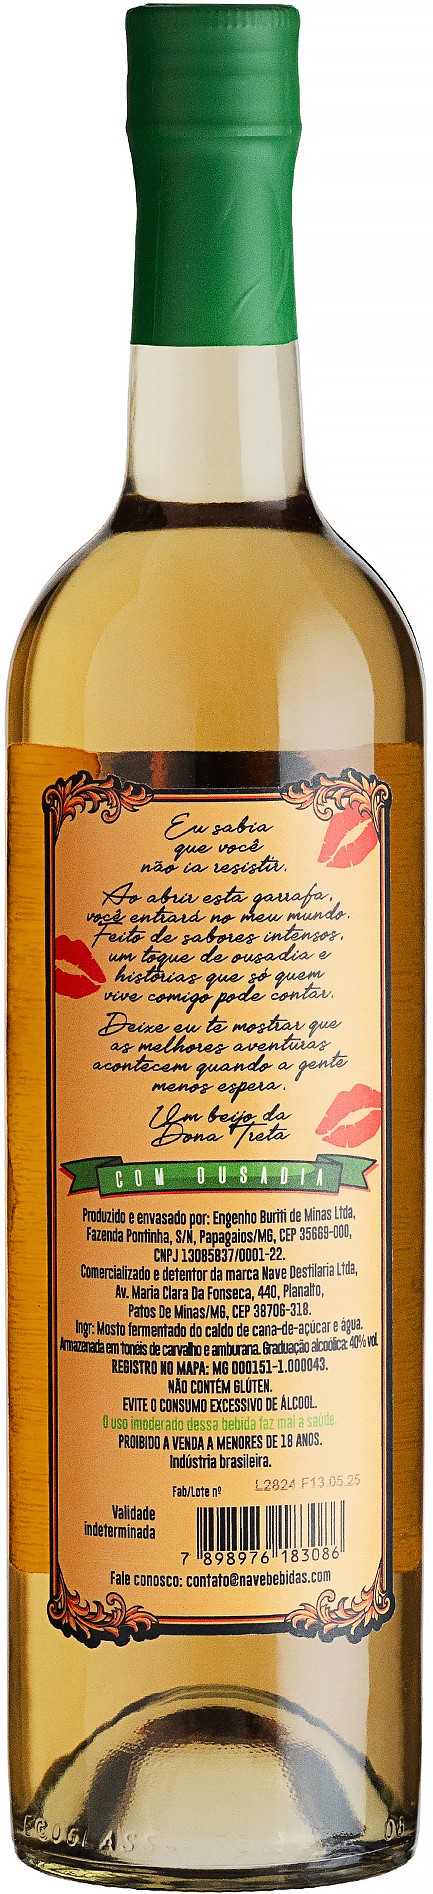 Eu sabia
que você
não ia resistir.
Ao abrir esta garrafa,
você entrará no meu mundo.
Feito de sabores intensos,
um toque de ousadia e
histórias que só quem
vive comigo pode contar.
Deixe eu te mostrar que
as melhores aventuras
acontecem quando a gente
menos espera.
Um beijo da
Dona Treta
COM OUSADIA
Produzido e envasado por: Engenho Buriti de Minas Ltda,
Fazenda Pontinha, S/N, Papagaios/MG, CEP 35669-000,
CNPJ 13085837/0001-22.
Comercializado e detentor da marca Nave Destilaria Ltda,
Av. Maria Clara Da Fonseca, 440, Planalto,
Patos De Minas/MG, CEP 38706-318.
Ingr: Mosto fermentado do caldo de cana-de-açúcar e água.
Armazenada em tonéis de carvalho e amburana. Graduação alcoólica: 40% vol.
REGISTRO NO MAPA: MG 000151-1.000043.
NÃO CONTÉM GLÚTEN.
EVITE O CONSUMO EXCESSIVO DE ÁLCOOL.
O uso imoderado dessa bebida faz mal a saúde.
PROIBIDO A VENDA A MENORES DE 18 ANOS.
Indústria brasileira.
Fab/Lote nº L2824 F13.05.25
Validade
indeterminada
7 898976 183086
Fale conosco: contato@navebebidas.com
ECOGLASS
06